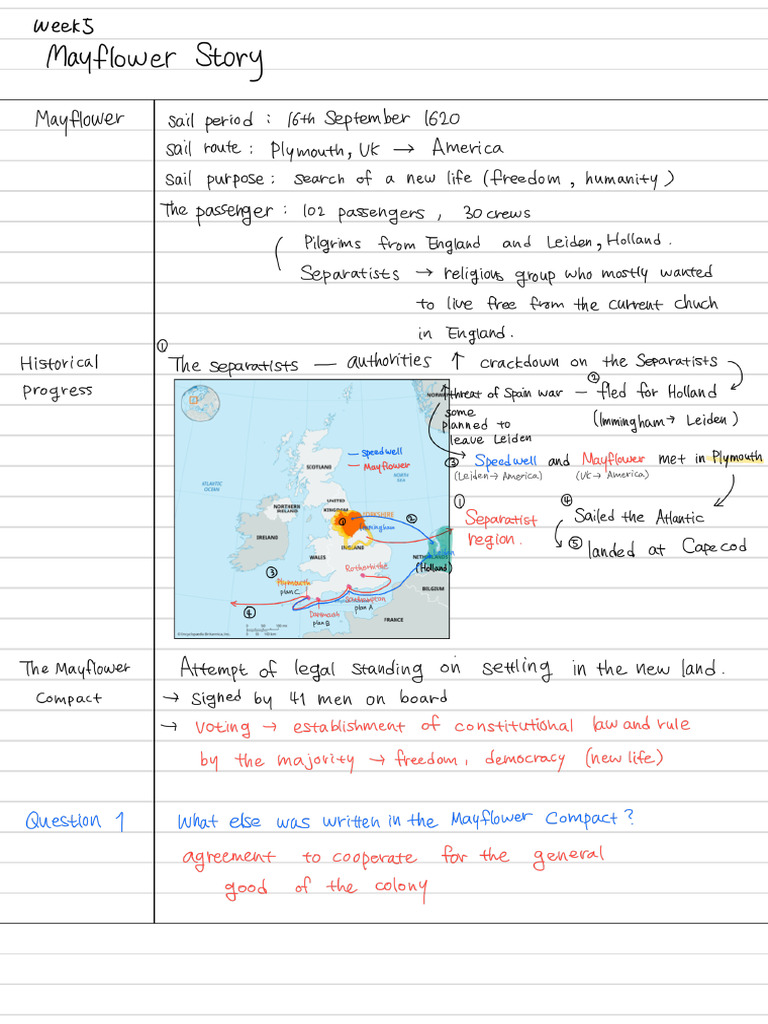 Week5
Mayflower Story
Mayflower
sail period : 16th September 1620
sail route : Plymouth, UK → America
sail purpose : search of a new life (freedom, humanity)
The passenger : 102 passengers, 30 crews
Pilgrims from England and Leiden, Holland.
Separatists → religious group who mostly wanted
to live free from the current chuch
in England.
Historical
progress
① The separatists — authorities ↑ crackdown on the Separatists
threat of Spain war — ② fled for Holland
(Immingham → Leiden)
some
planned to
leave Leiden
③ Speedwell and Mayflower met in Plymouth
(Leiden → America) (UK → America)
① Separatist
region.
④ Sailed the Atlantic
⑤ landed at Cape cod
— Speedwell
— Mayflower
NORTH
SEA
ATLANTIC
OCEAN
SCOTLAND
UNITED
KINGDOM
NORTHERN
IRELAND
IRELAND
YORKSHIRE
①
Immingham
②
ENGLAND
WALES
NETHERLANDS
(Holland)
Rotherhithe
③
Plymouth
plan C
Southampton
plan A
Dartmouth
plan B
④
BELGIUM
FRANCE
© Encyclopædia Britannica, Inc.
The Mayflower
Compact
Attempt of legal standing on settling in the new land.
→ Signed by 41 men on board
→ Voting → establishment of constitutional law and rule
by the majority → freedom, democracy (new life)
Question 1
What else was written in the Mayflower Compact?
agreement to cooperate for the general
good of the colony